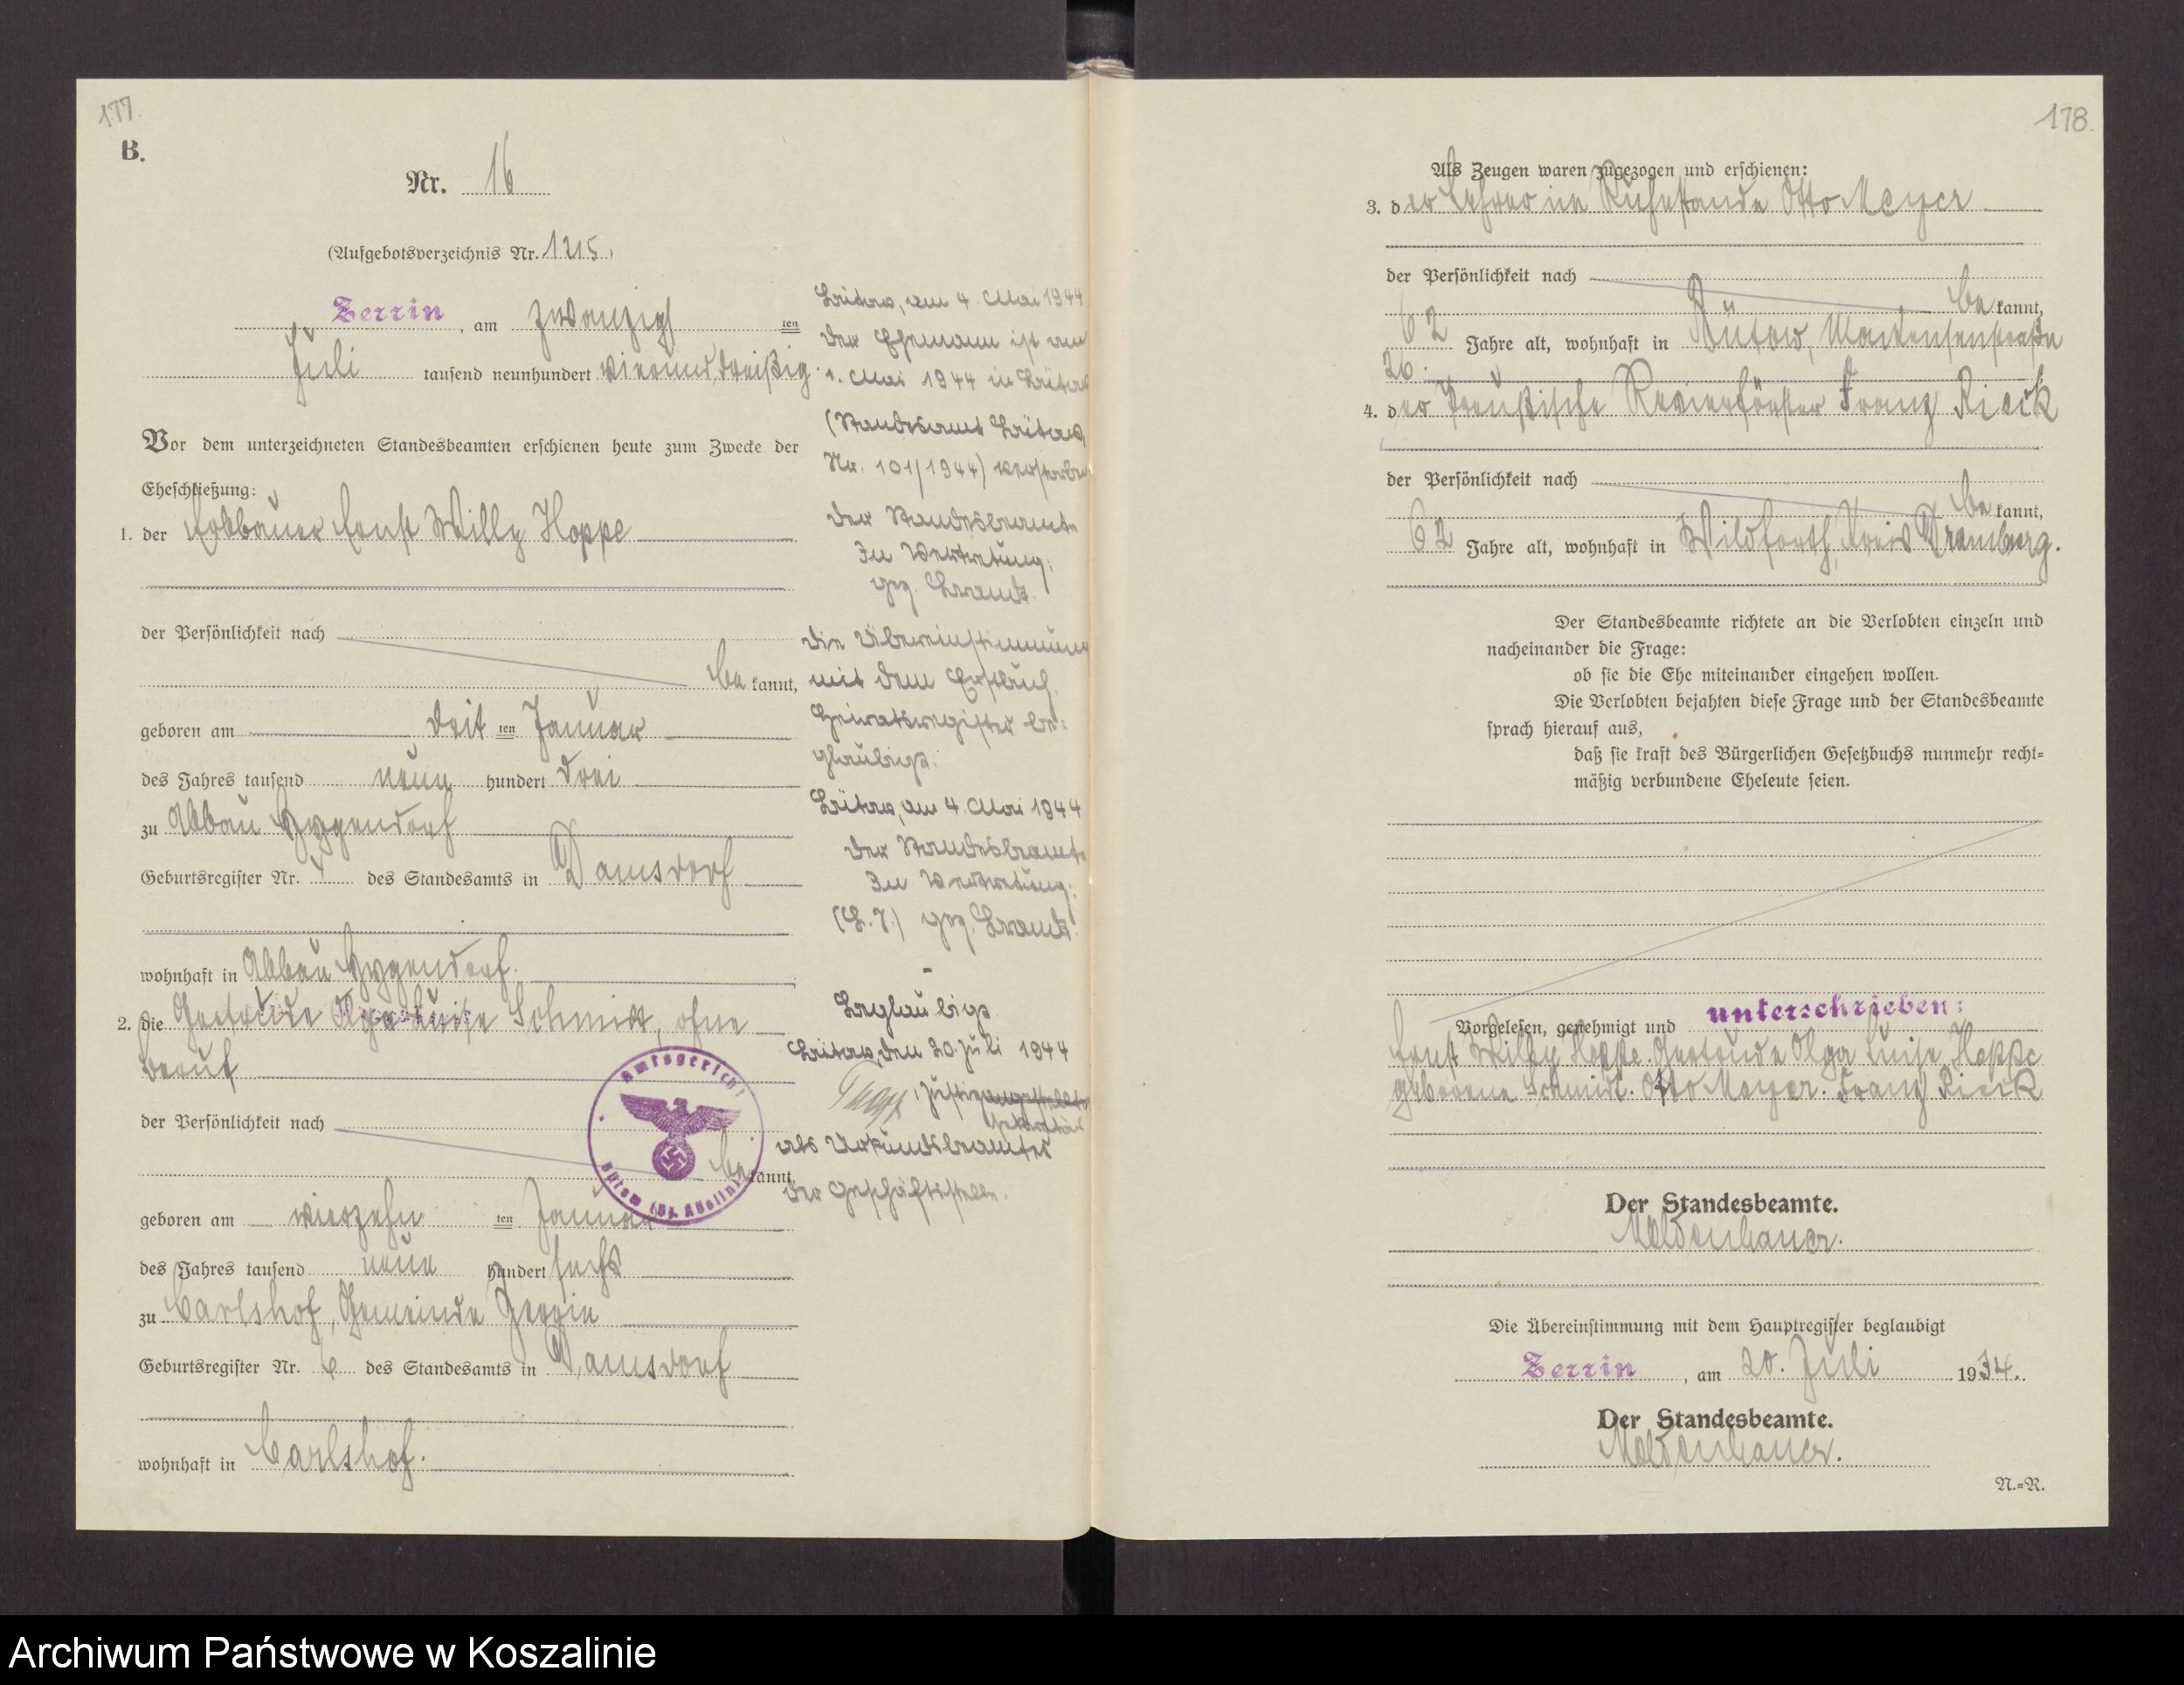 177.
B.
Nr. 16
(Aufgebotsverzeichnis Nr. 1215)
Zerrin, am zwanzigsten
Juli tausend neunhundert vierunddreißig.
Vor dem unterzeichneten Standesbeamten erschienen heute zum Zwecke der
Eheschließung:
1. der Erbbauer Ernst Willy Hoppe
der Persönlichkeit nach
be kannt,
geboren am dritten Januar
des Jahres tausend neun hundert drei
zu Abbau Hygendorf
Geburtsregister Nr. 4 des Standesamts in Damsdorf
wohnhaft in Abbau Hygendorf.
2. die Gertrude Olga Luise Schmidt, ohne
Beruf
der Persönlichkeit nach
be kannt,
geboren am vierzehn ten Januar
des Jahres tausend neun hundert sechs
zu Carlshof, Gemeinde Zerrin
Geburtsregister Nr. 6 des Standesamts in Damsdorf
wohnhaft in Carlshof.
Bütow, am 4. Mai 1944
Der Ehemann ist am
1. Mai 1944 in Bütow
(Standesamt Bütow
Nr. 101/1944) verstorben
Der Standesbeamte
In Vertretung:
gez. Brandt.
Die Übereinstimmung
mit dem Erstbuch
Heiratsregister be-
glaubigt.
Bütow, am 4. Mai 1944
Der Standesbeamte
In Vertretung:
(L. S.) gez. Brandt.
Beglaubigt
Bütow, den 20. Juli 1944
Justizangestellter
Sekretär
als Urkundsbeamter
der Geschäftsstelle.
Amtsgericht
Bütow (Bz. Köslin)
178.
Als Zeugen waren zugezogen und erschienen:
3. der Lehrer im Ruhestande Otto Meyer
der Persönlichkeit nach
be kannt,
62 Jahre alt, wohnhaft in Bütow, Mackensenstraße
26.
4. der Preußische Revierförster Franz Rieck
der Persönlichkeit nach
be kannt,
62 Jahre alt, wohnhaft in Wildforth, Kreis Dramburg.
Der Standesbeamte richtete an die Verlobten einzeln und
nacheinander die Frage:
ob sie die Ehe miteinander eingehen wollen.
Die Verlobten bejahten diese Frage und der Standesbeamte
sprach hierauf aus,
daß sie kraft des Bürgerlichen Gesetzbuchs nunmehr recht-
mäßig verbundene Eheleute seien.
Vorgelesen, genehmigt und unterschrieben:
Ernst Willy Hoppe. Gertrude Olga Luise Hoppe
geborene Schmidt. Otto Meyer. Franz Rieck
Der Standesbeamte.
Moldenhauer.
Die Übereinstimmung mit dem Hauptregister beglaubigt
Zerrin, am 20. Juli 1934.
Der Standesbeamte.
Moldenhauer.
N.=R.
Archiwum Państwowe w Koszalinie